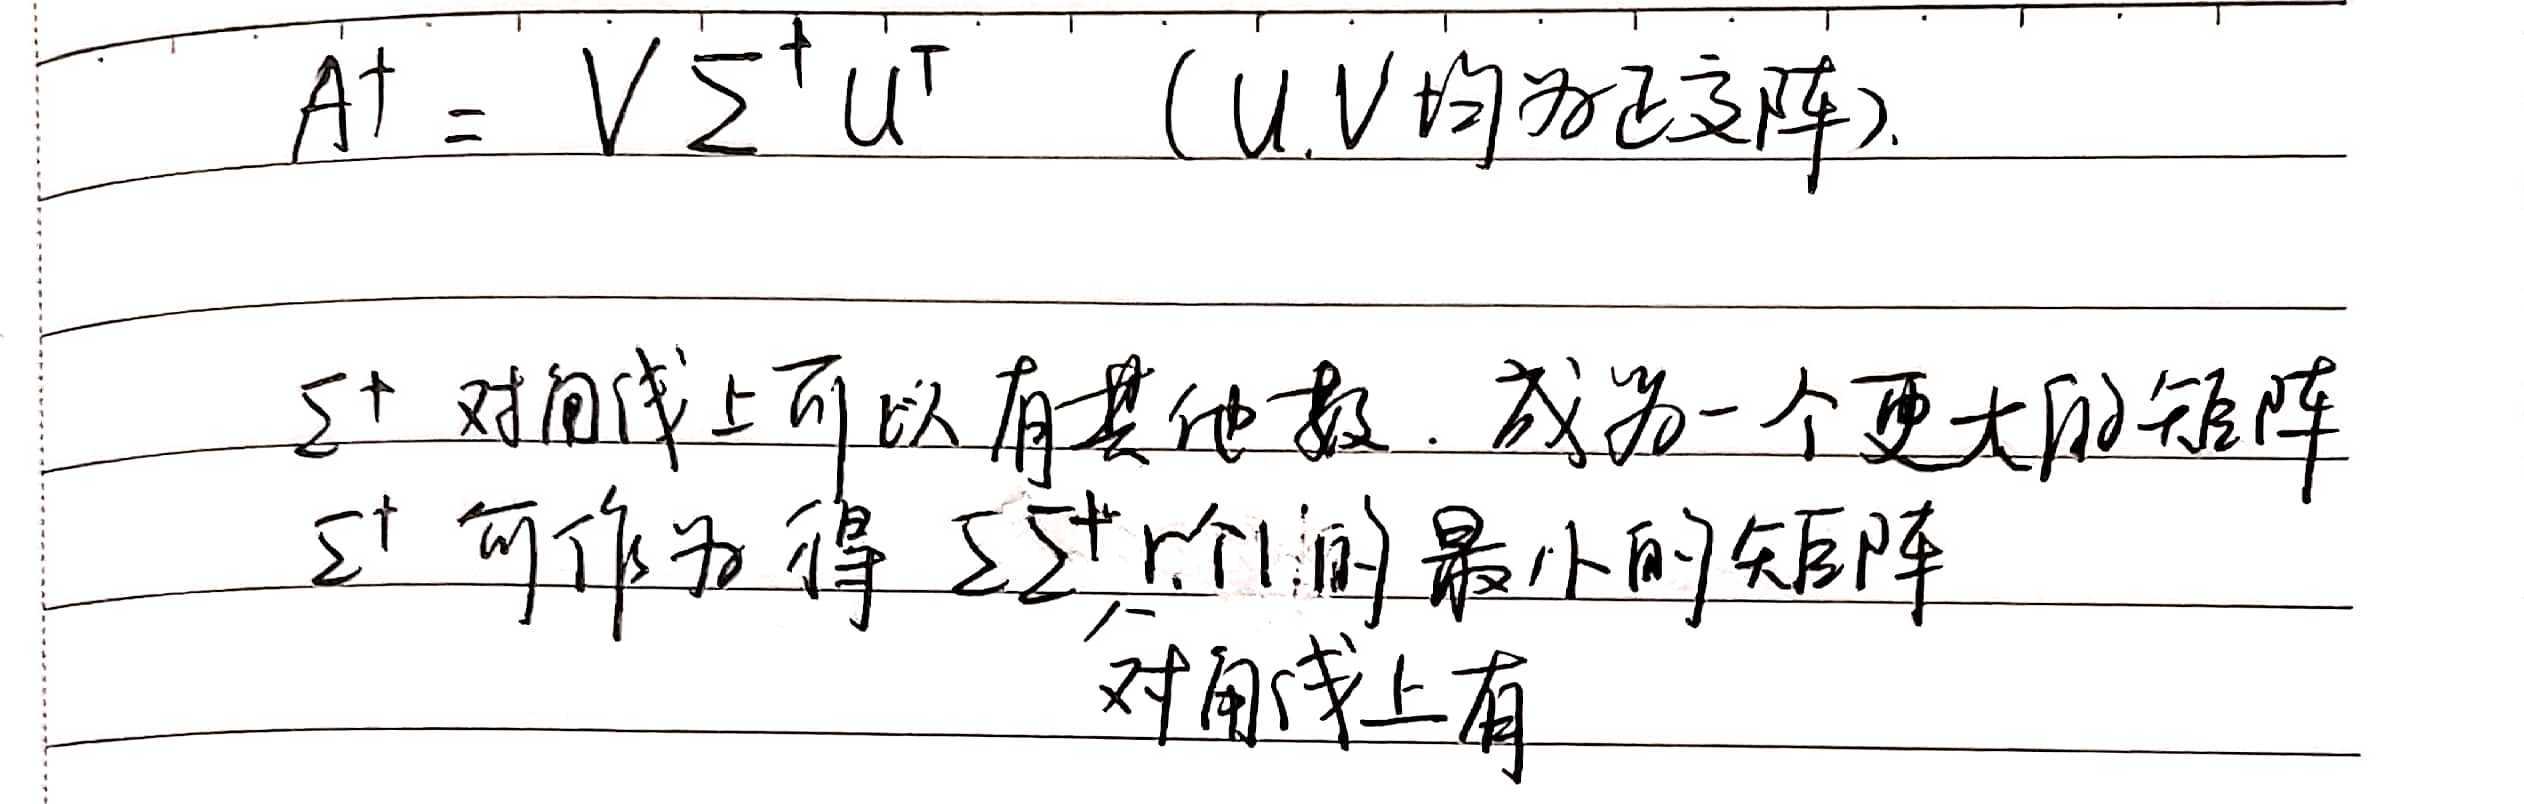 A⁺ = V Σ⁺ Uᵀ (U.V均为正交阵).
Σ⁺ 对角线上可以有其他数. 成为一个更大的矩阵
Σ⁺ 可作为得 ΣΣ⁺ r个1的最小的矩阵
对角线上有